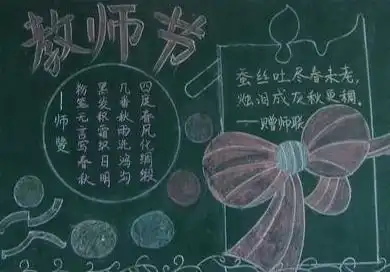 教师节
四度春风化绸缎
几番秋雨洗鸿沟
黑发积霜织日明
粉笔无言写春秋
——师赞
蚕丝吐尽春未老,
烛泪成灰秋更稠。
——赠师联